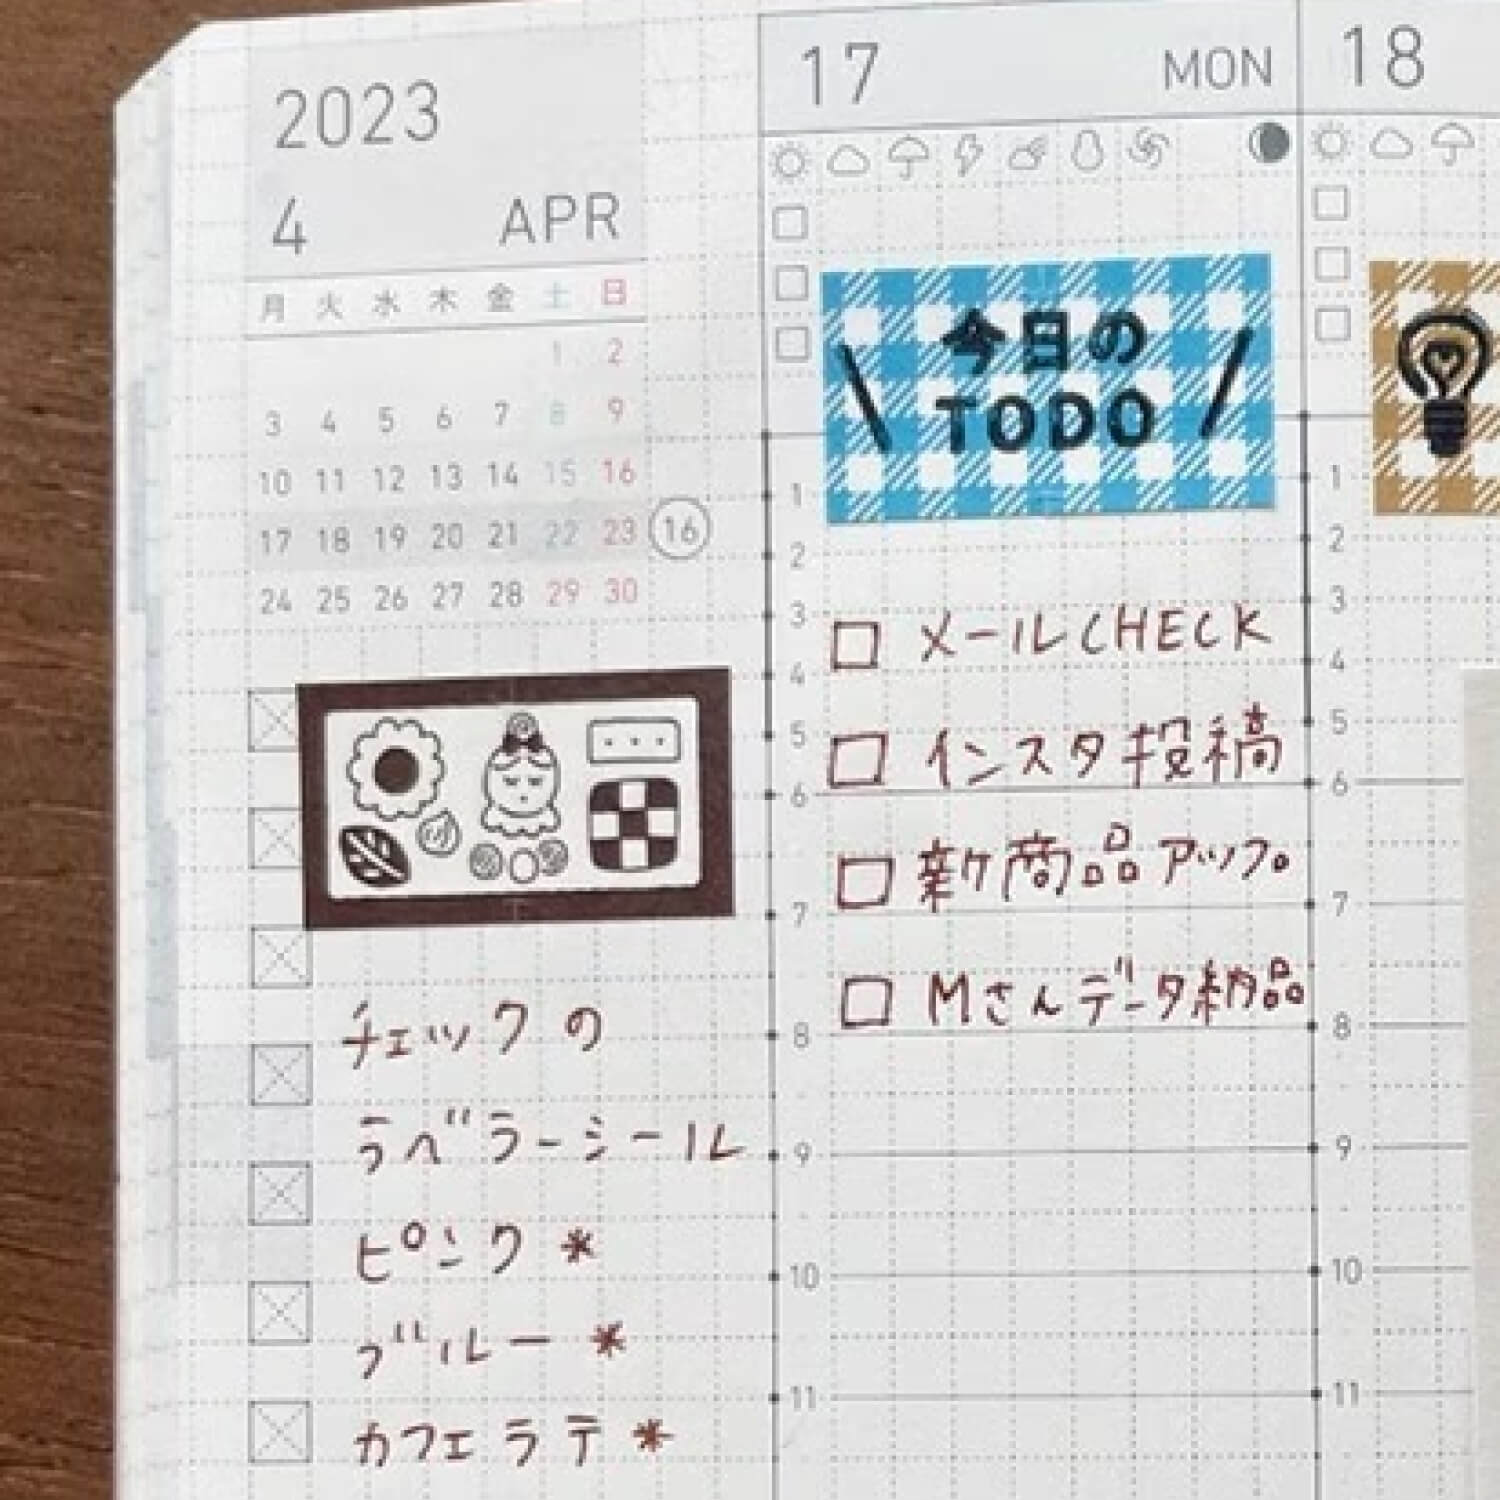 2023
4 APR
月 火 水 木 金 土 日
1 2
3 4 5 6 7 8 9
10 11 12 13 14 15 16
17 18 19 20 21 22 23 16
24 25 26 27 28 29 30
チェックの
ラベラーシール
ピンク *
ブルー *
カフェラテ *
17 MON
今日の
TODO
1
2
3
メールCHECK
4
5
インスタ投稿
6
新商品アップ。
7
Mさんデータ納品
8
9
10
11
18
1
2
3
4
5
6
7
8
9
10
11